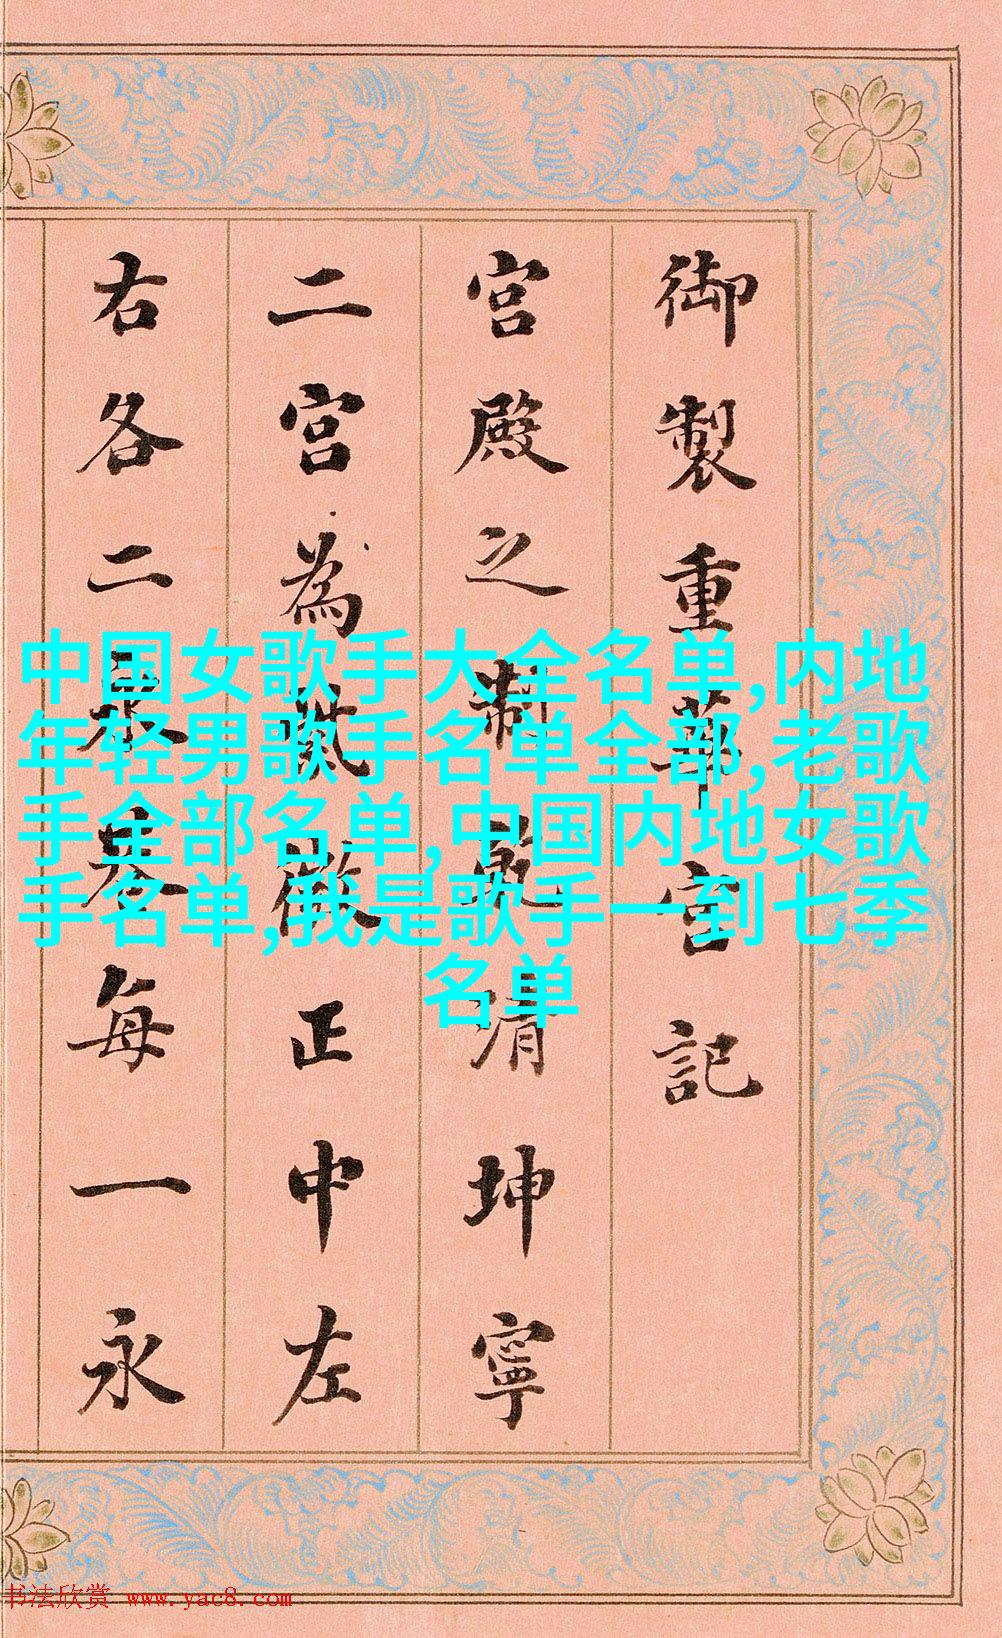 御製重華宮記
宮殿之制乾清坤寧
二宮為微正中左
右各二永巷每一永
中国女歌手大全名单,内地
年轻男歌手名单全部,老歌
手全部名单,中国内地女歌
手名单,我是歌手一到七季
名单
书法欣赏 www.yac8.com